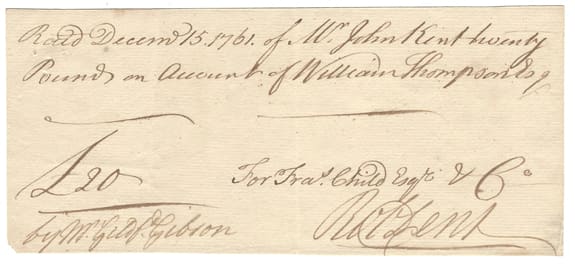 Recd Decemr. 15. 1761. of Mr. John Kent twenty
Pounds on Account of William Thompson Esq
£20
For Fras. Child Esqr. & Co
by Mr. Gibson
Robt Dent